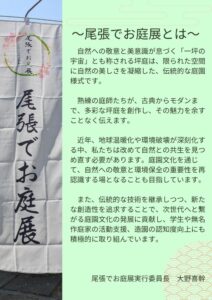 尾張でお庭展
尾張でお庭展
～尾張でお庭展とは～
自然への敬意と美意識が息づく「一坪の
宇宙」とも称される坪庭は、限られた空間
に自然の美しさを凝縮した、伝統的な庭園
様式です。
熟練の庭師たちが、古典からモダンま
で、多彩な坪庭を創作し、その魅力を余す
ことなく伝えます。
近年、地球温暖化や環境破壊が深刻化す
る中、私たちは改めて自然との共生を見つ
め直す必要があります。庭園文化を通じ
て、自然への敬意と環境保全の重要性を再
認識する場となることも目指しています。
また、伝統的な技術を継承しつつ、新た
な創造性を追求することで、次世代へと繋
がる庭園文化の発展に貢献し、学生や無名
作庭家の活動支援、造園の認知度向上にも
積極的に取り組んでいます。
尾張でお庭展実行委員長　大野喜幹